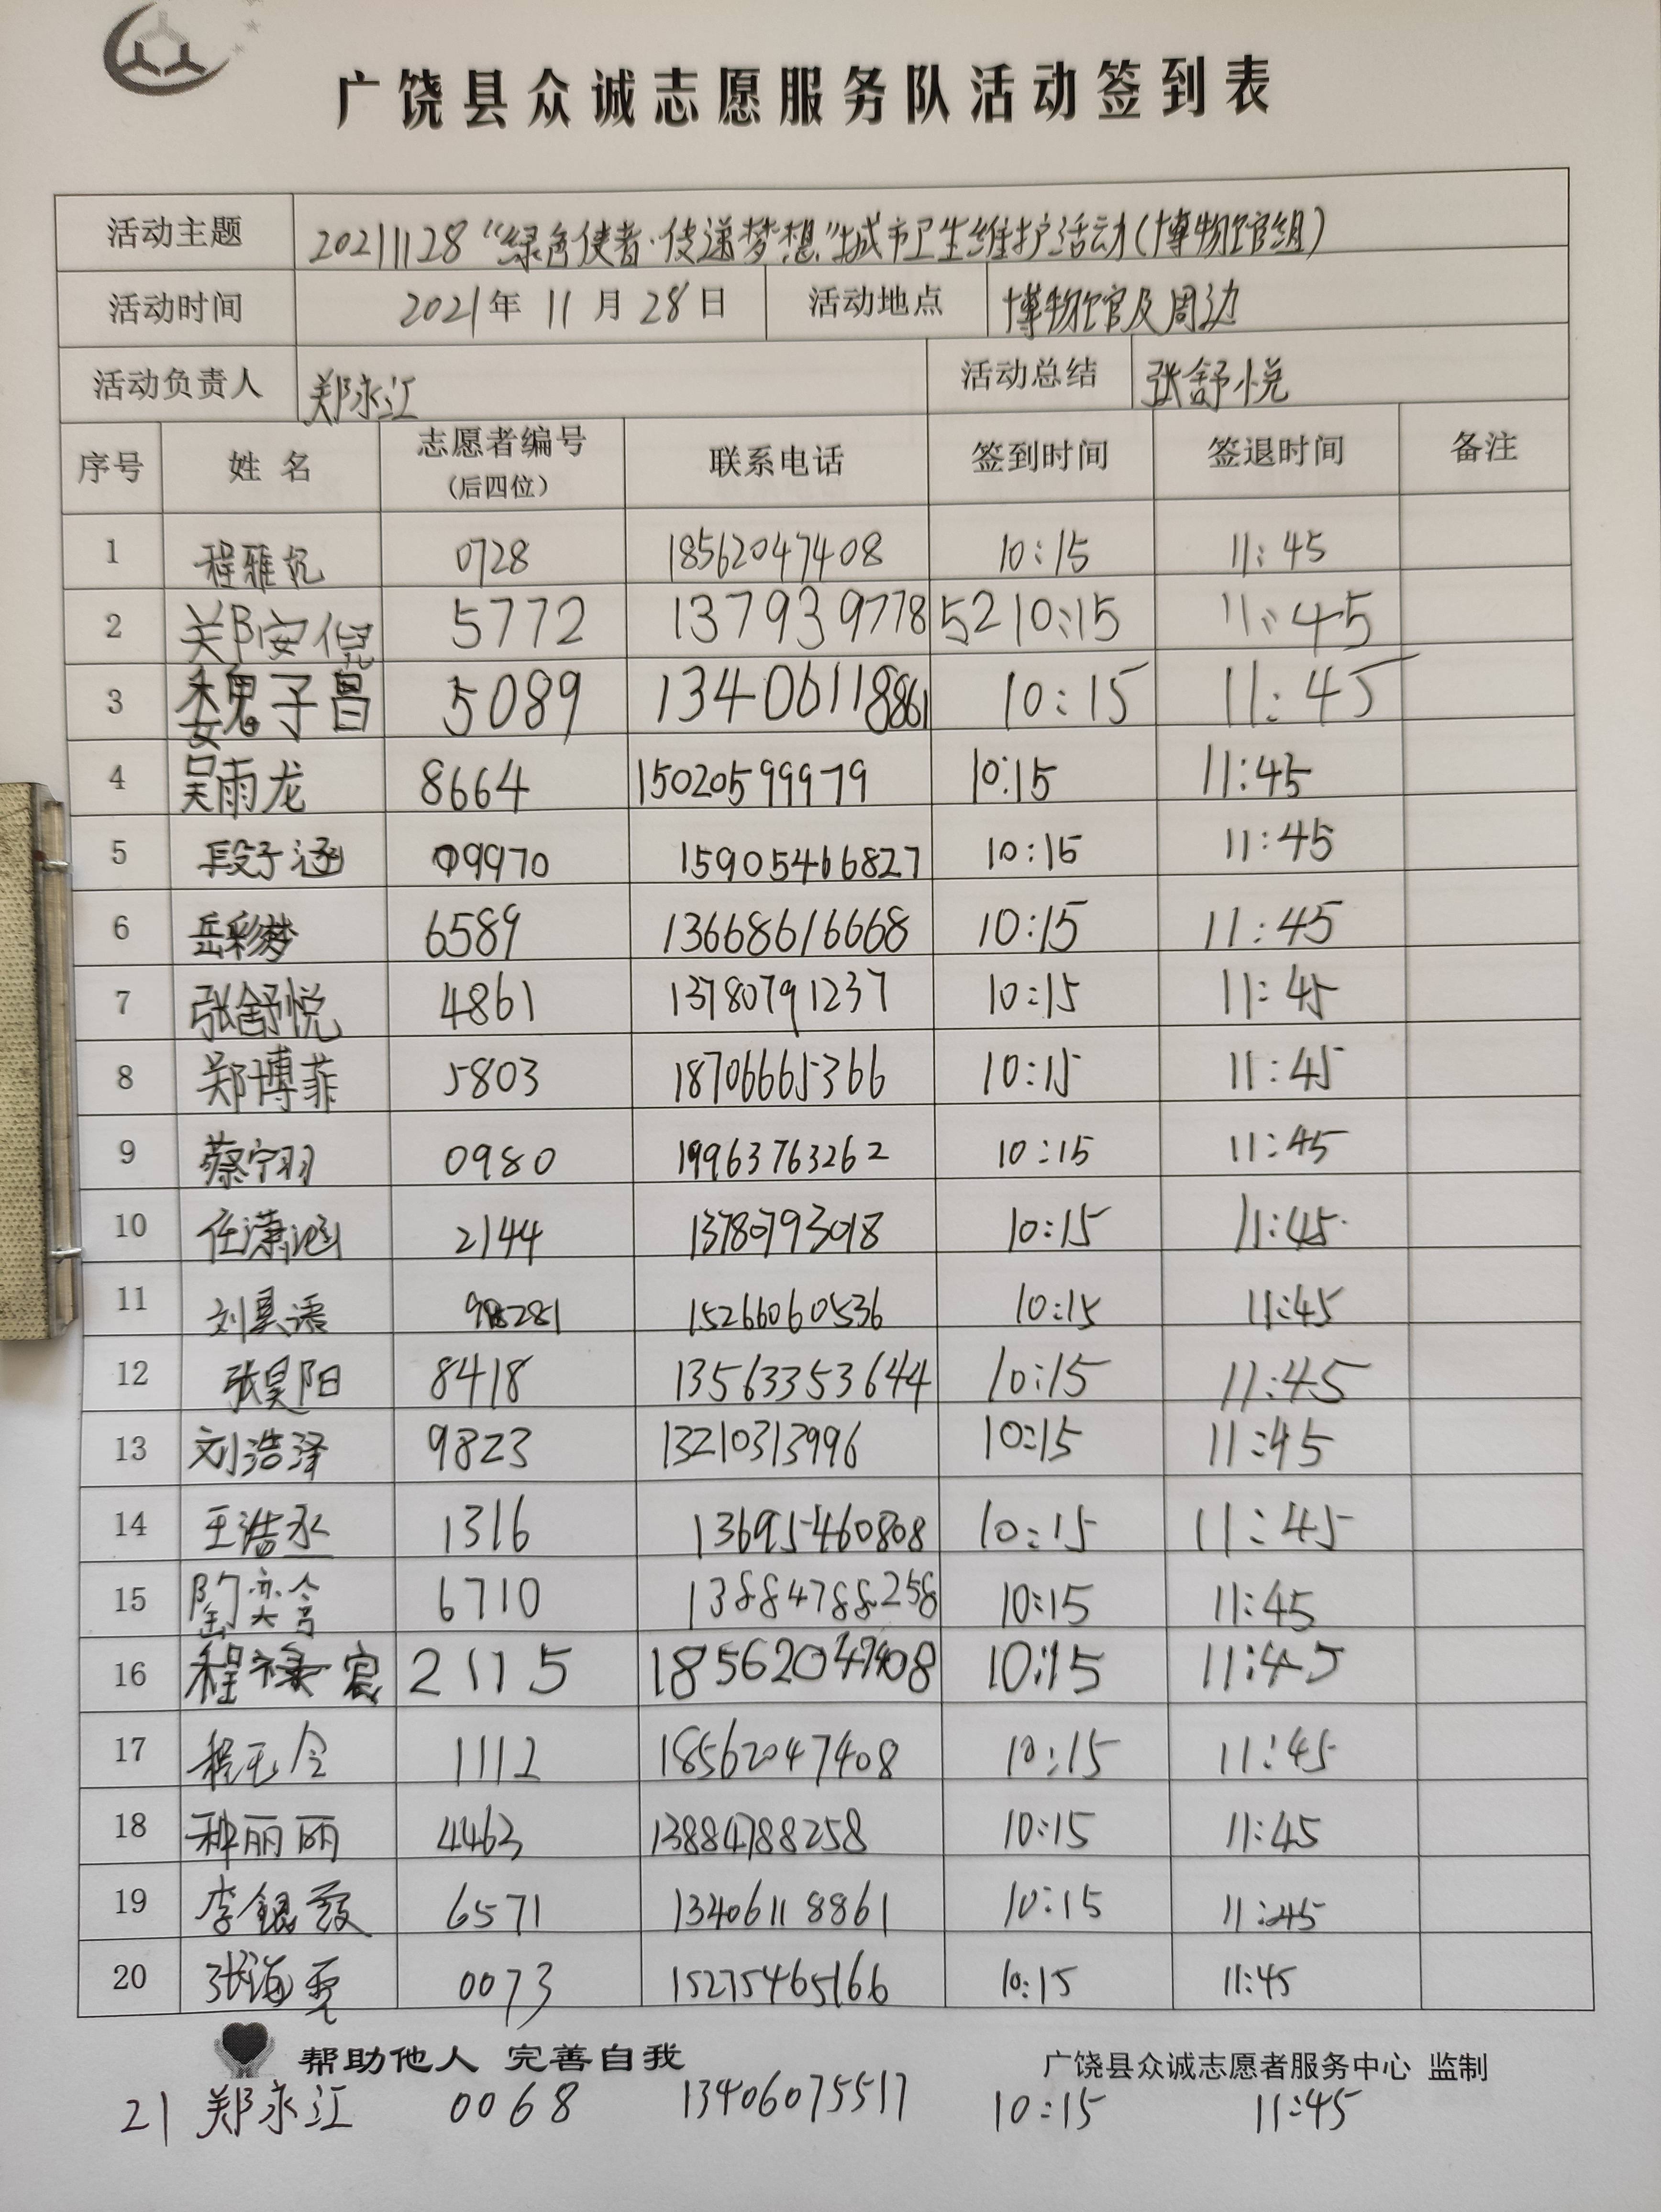 广饶县众诚志愿服务队活动签到表
活动主题 20211128“绿色使者·传递梦想”城市卫生维护活动(博物馆组)
活动时间 2021年 11 月 28 日 活动地点 博物馆及周边
活动负责人 郑永江 活动总结 张舒悦
序号 姓 名 志愿者编号 (后四位) 联系电话 签到时间 签退时间 备注
1 程雅 0728 18562047408 10:15 11:45
2 郑安倪 5772 13793977852 10:15 11:45
3 魏子昌 5089 13406118861 10:15 11:45
4 吴雨龙 8664 15020599979 10:15 11:45
5 段子涵 09970 15905466827 10:15 11:45
6 岳彩梦 6589 13668616668 10:15 11:45
7 张舒悦 4861 13780791237 10:15 11:45
8 郑博菲 5803 18706665366 10:15 11:45
9 蔡宁羽 0980 19963763262 10:15 11:45
10 任潇涵 2144 13780793018 10:15 11:45
11 刘昊语 8281 15266060536 10:15 11:45
12 张昊阳 8418 13563353644 10:15 11:45
13 刘浩泽 9823 13210313996 10:15 11:45
14 王浩丞 1316 13695460808 10:15 11:45
15 陶奕含 6710 13884788258 10:15 11:45
16 程禄宸 2115 18562047408 10:15 11:45
17 程 1112 18562047408 10:15 11:45
18 种丽丽 4463 13884788258 10:15 11:45
19 李银霞 6571 13406118861 10:15 11:45
20 张海 0073 15275465166 10:15 11:45
帮助他人 完善自我 广饶县众诚志愿者服务中心 监制
21 郑永江 0068 13406075517 10:15 11:45